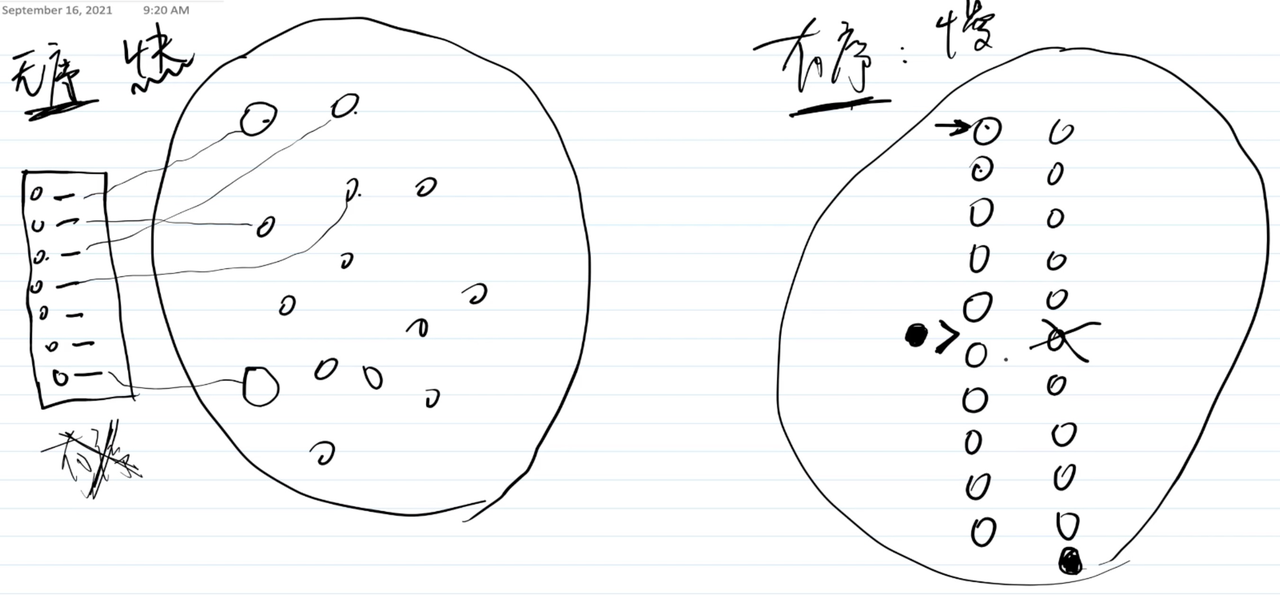 September 16, 2021 9:20 AM
无序 快
有序：慢